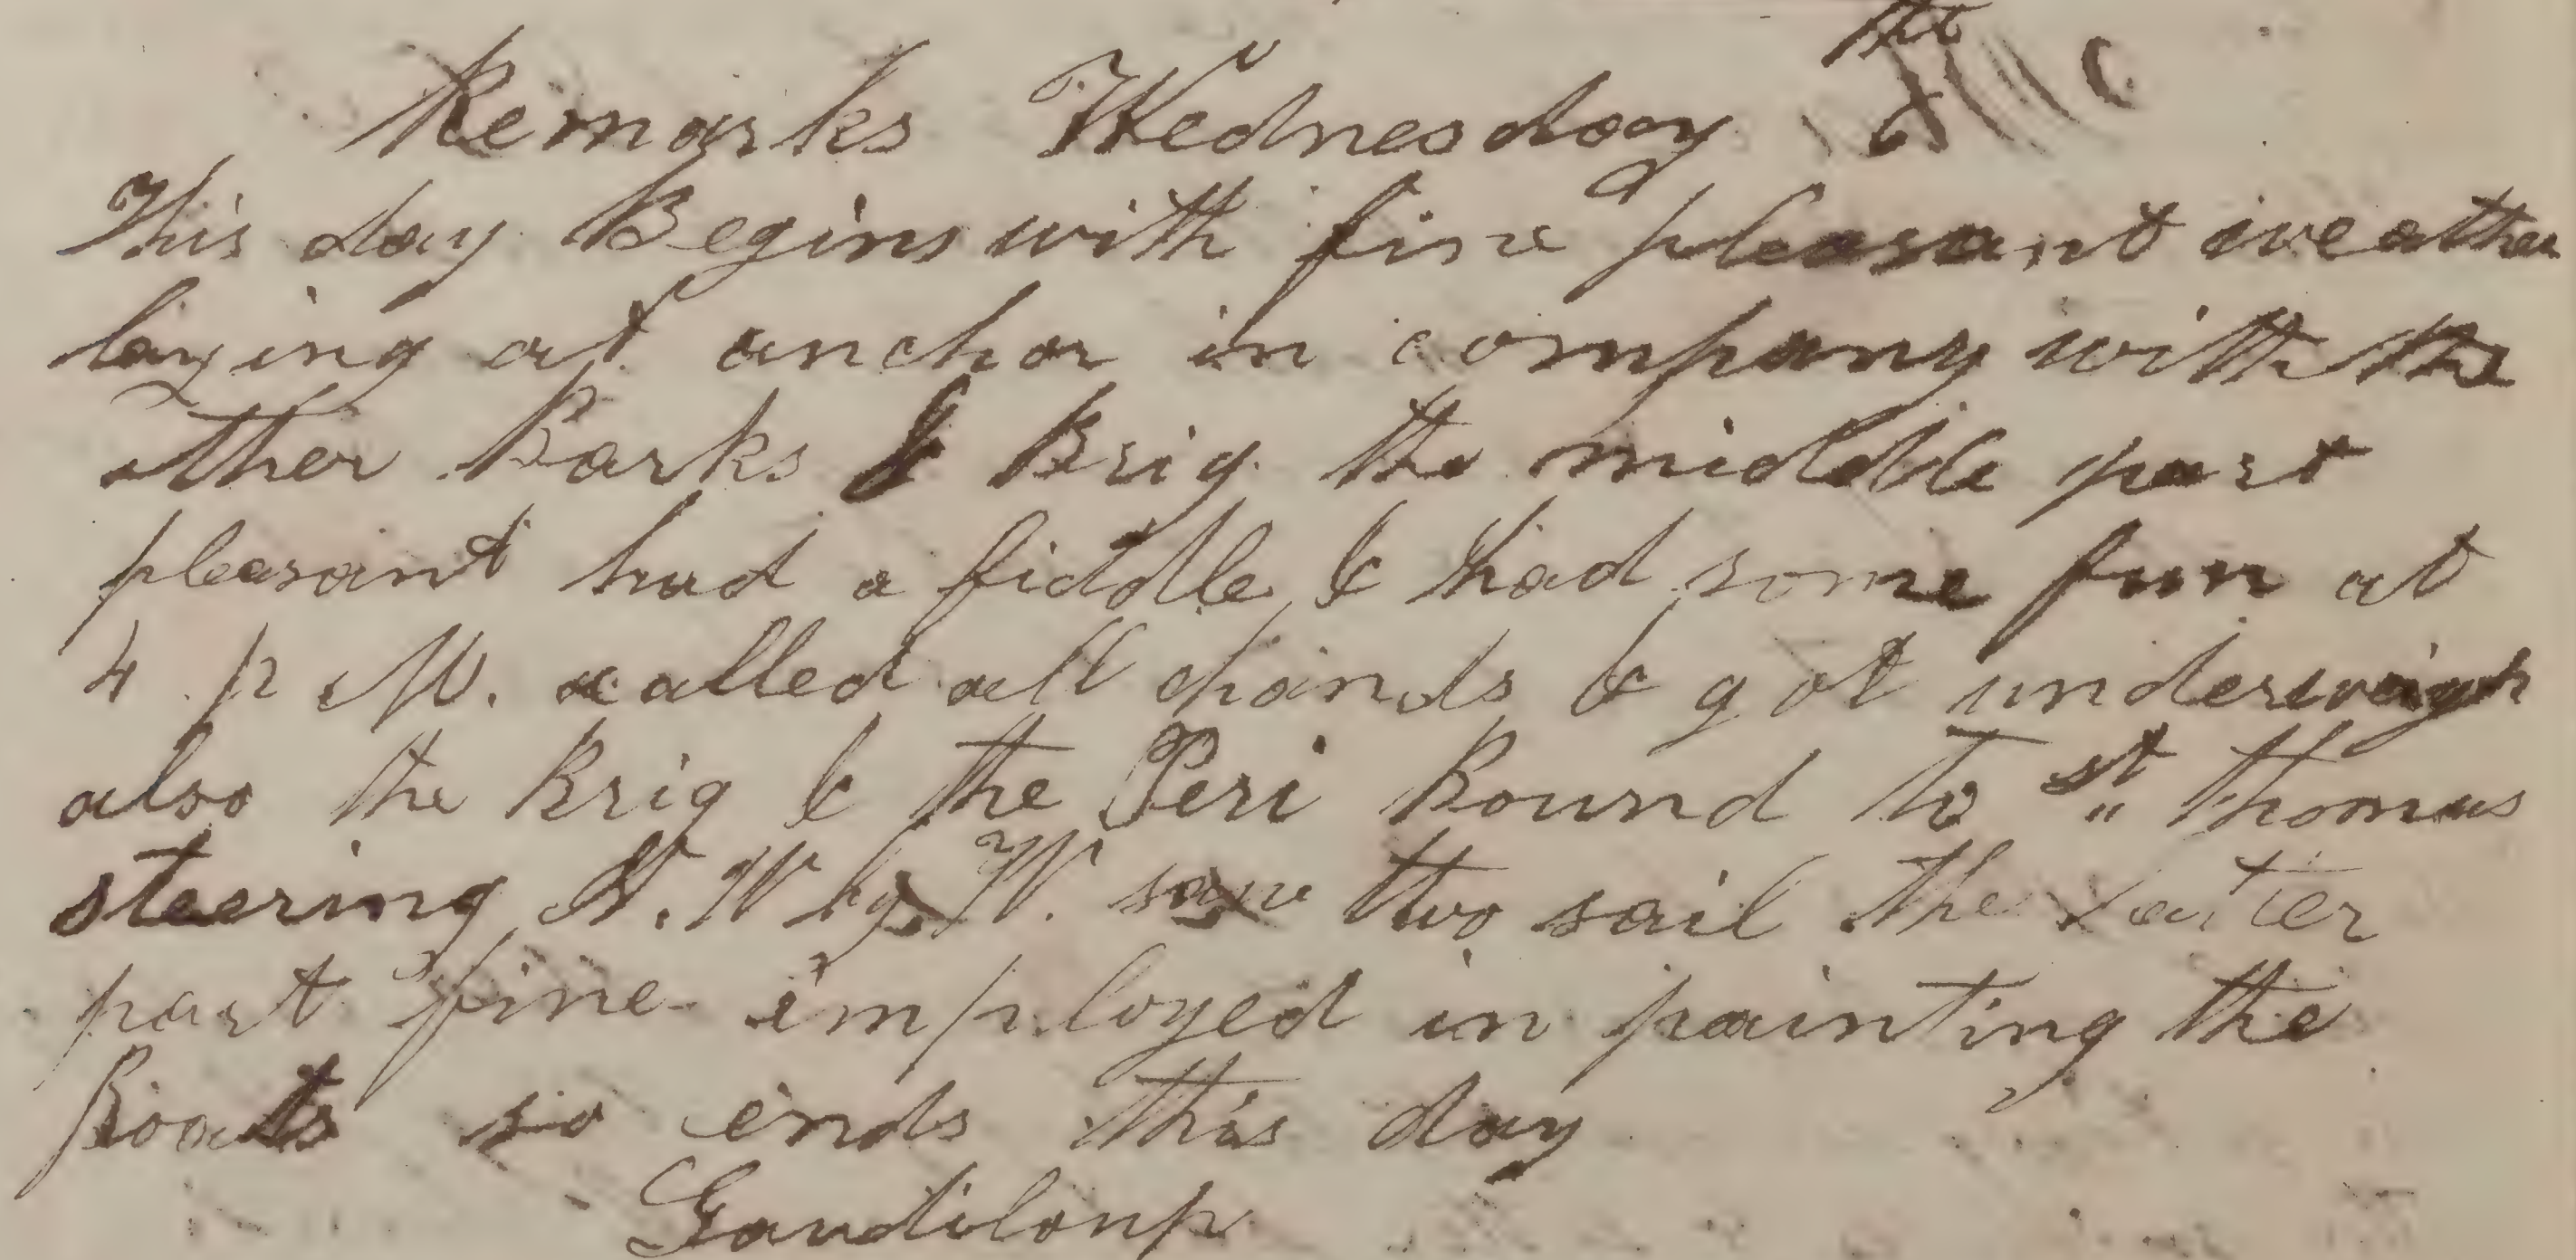 Remarks Wednesday 6th
This day Begins with fine pleasant weather
laying at anchor in company with the
other Barks & Brig the middle part
pleasant had a fiddle & had some fun at
4 p M. called all hands & got underweigh
also the Brig & the Peri Bound to St" thomas
steering N. W by W. saw two sail the latter
part fine imployed in painting the
Boats so ends this day
Gaudiloup